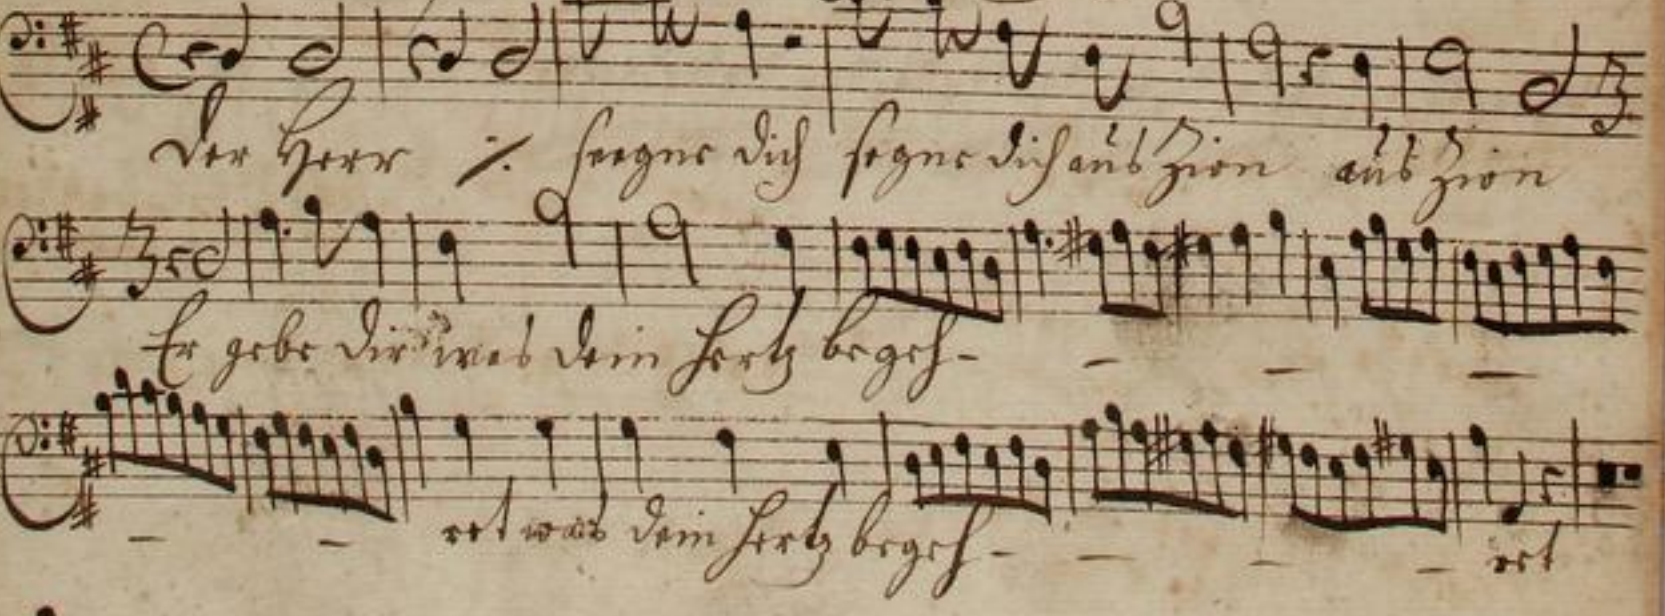 Der Herr ./. seegne dich segne dich aus Zion aus Zion
3
Er gebe dir was dein Hertz begeh- - - -
- - ret was dein Hertz begeh- - - - ret